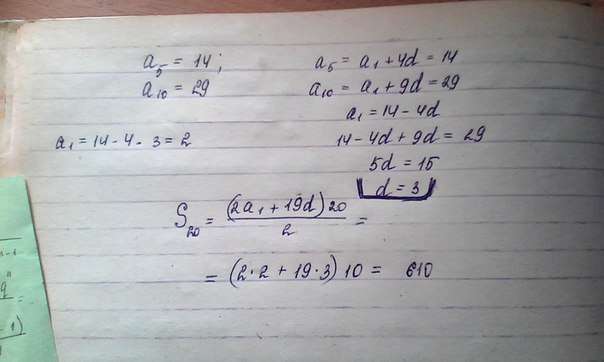 a₅ = 14;
a₁₀ = 29
a₅ = a₁ + 4d = 14
a₁₀ = a₁ + 9d = 29
a₁ = 14 - 4d
14 - 4d + 9d = 29
5d = 15
d = 3
a₁ = 14 - 4 · 3 = 2
S₂₀ = (2a₁ + 19d) 20 / 2 =
= (2 · 2 + 19 · 3) 10 = 610